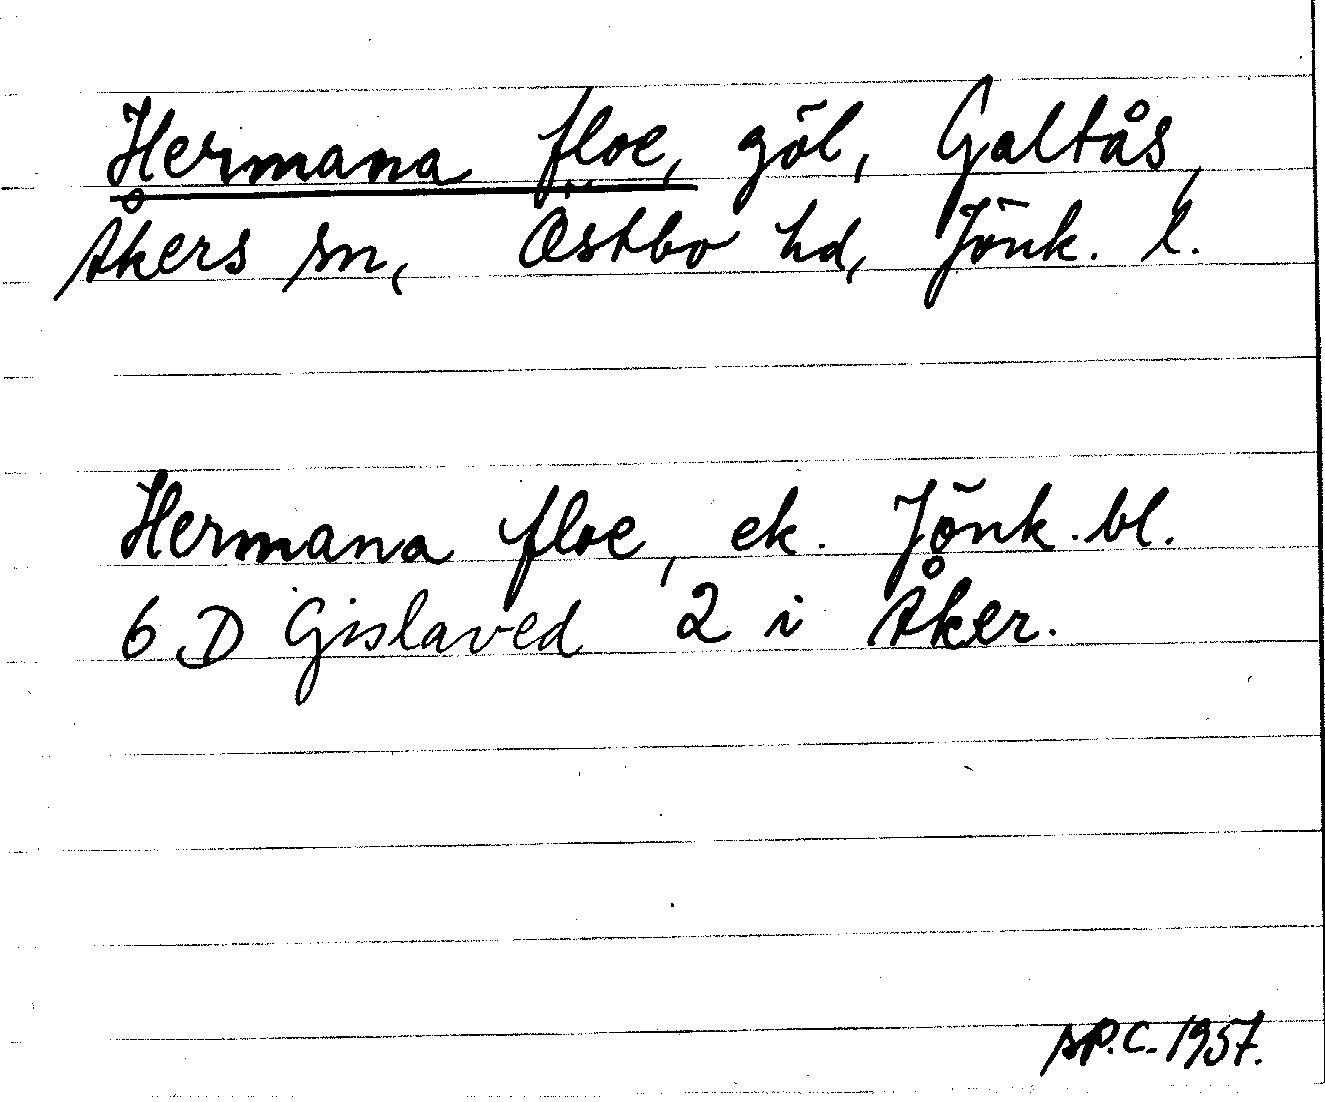 Hermana floe, göl, Galtås,
Åkers sn, Östbo hd, Jönk. l.
Hermana floe, ek. Jönk. bl.
6 D Gislaved 2 i Åker.
P.C. 1957.